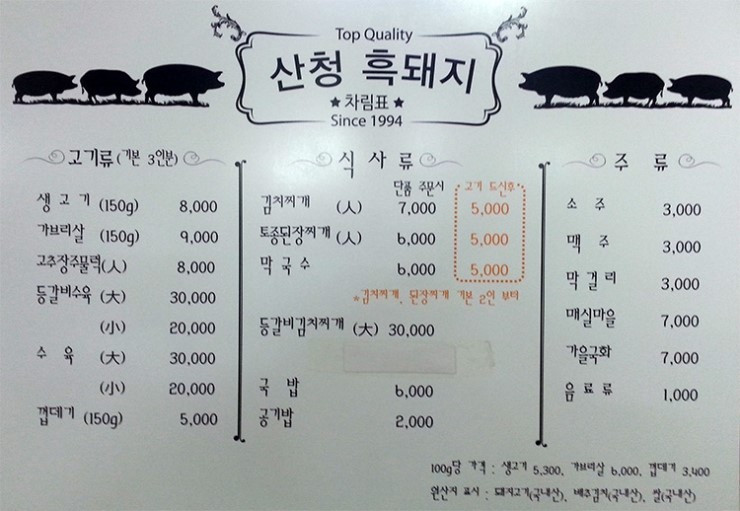 Top Quality
산청 흑돼지
★ 차림표 ★
Since 1994
고기류 (기본 3인분)
생 고 기 (150g) 8,000
가브리살 (150g) 9,000
고추장주물럭(人) 8,000
등갈비수육 (大) 30,000
(小) 20,000
수 육 (大) 30,000
(小) 20,000
껍데기 (150g) 5,000
식 사 류
단품 주문시 고기 드신후
김치찌개 (人) 7,000 5,000
토종된장찌개 (人) 6,000 5,000
막 국 수 6,000 5,000
*김치찌개, 된장찌개 기본 2인 부터
등갈비김치찌개 (大) 30,000
국 밥 6,000
공기밥 2,000
주 류
소 주 3,000
맥 주 3,000
막 걸 리 3,000
매실마을 7,000
가을국화 7,000
음 료 류 1,000
100g당 가격 : 생고기 5,300, 가브리살 6,000, 껍데기 3,400
원산지 표시 : 돼지고기(국내산), 배추김치(국내산), 쌀(국내산)